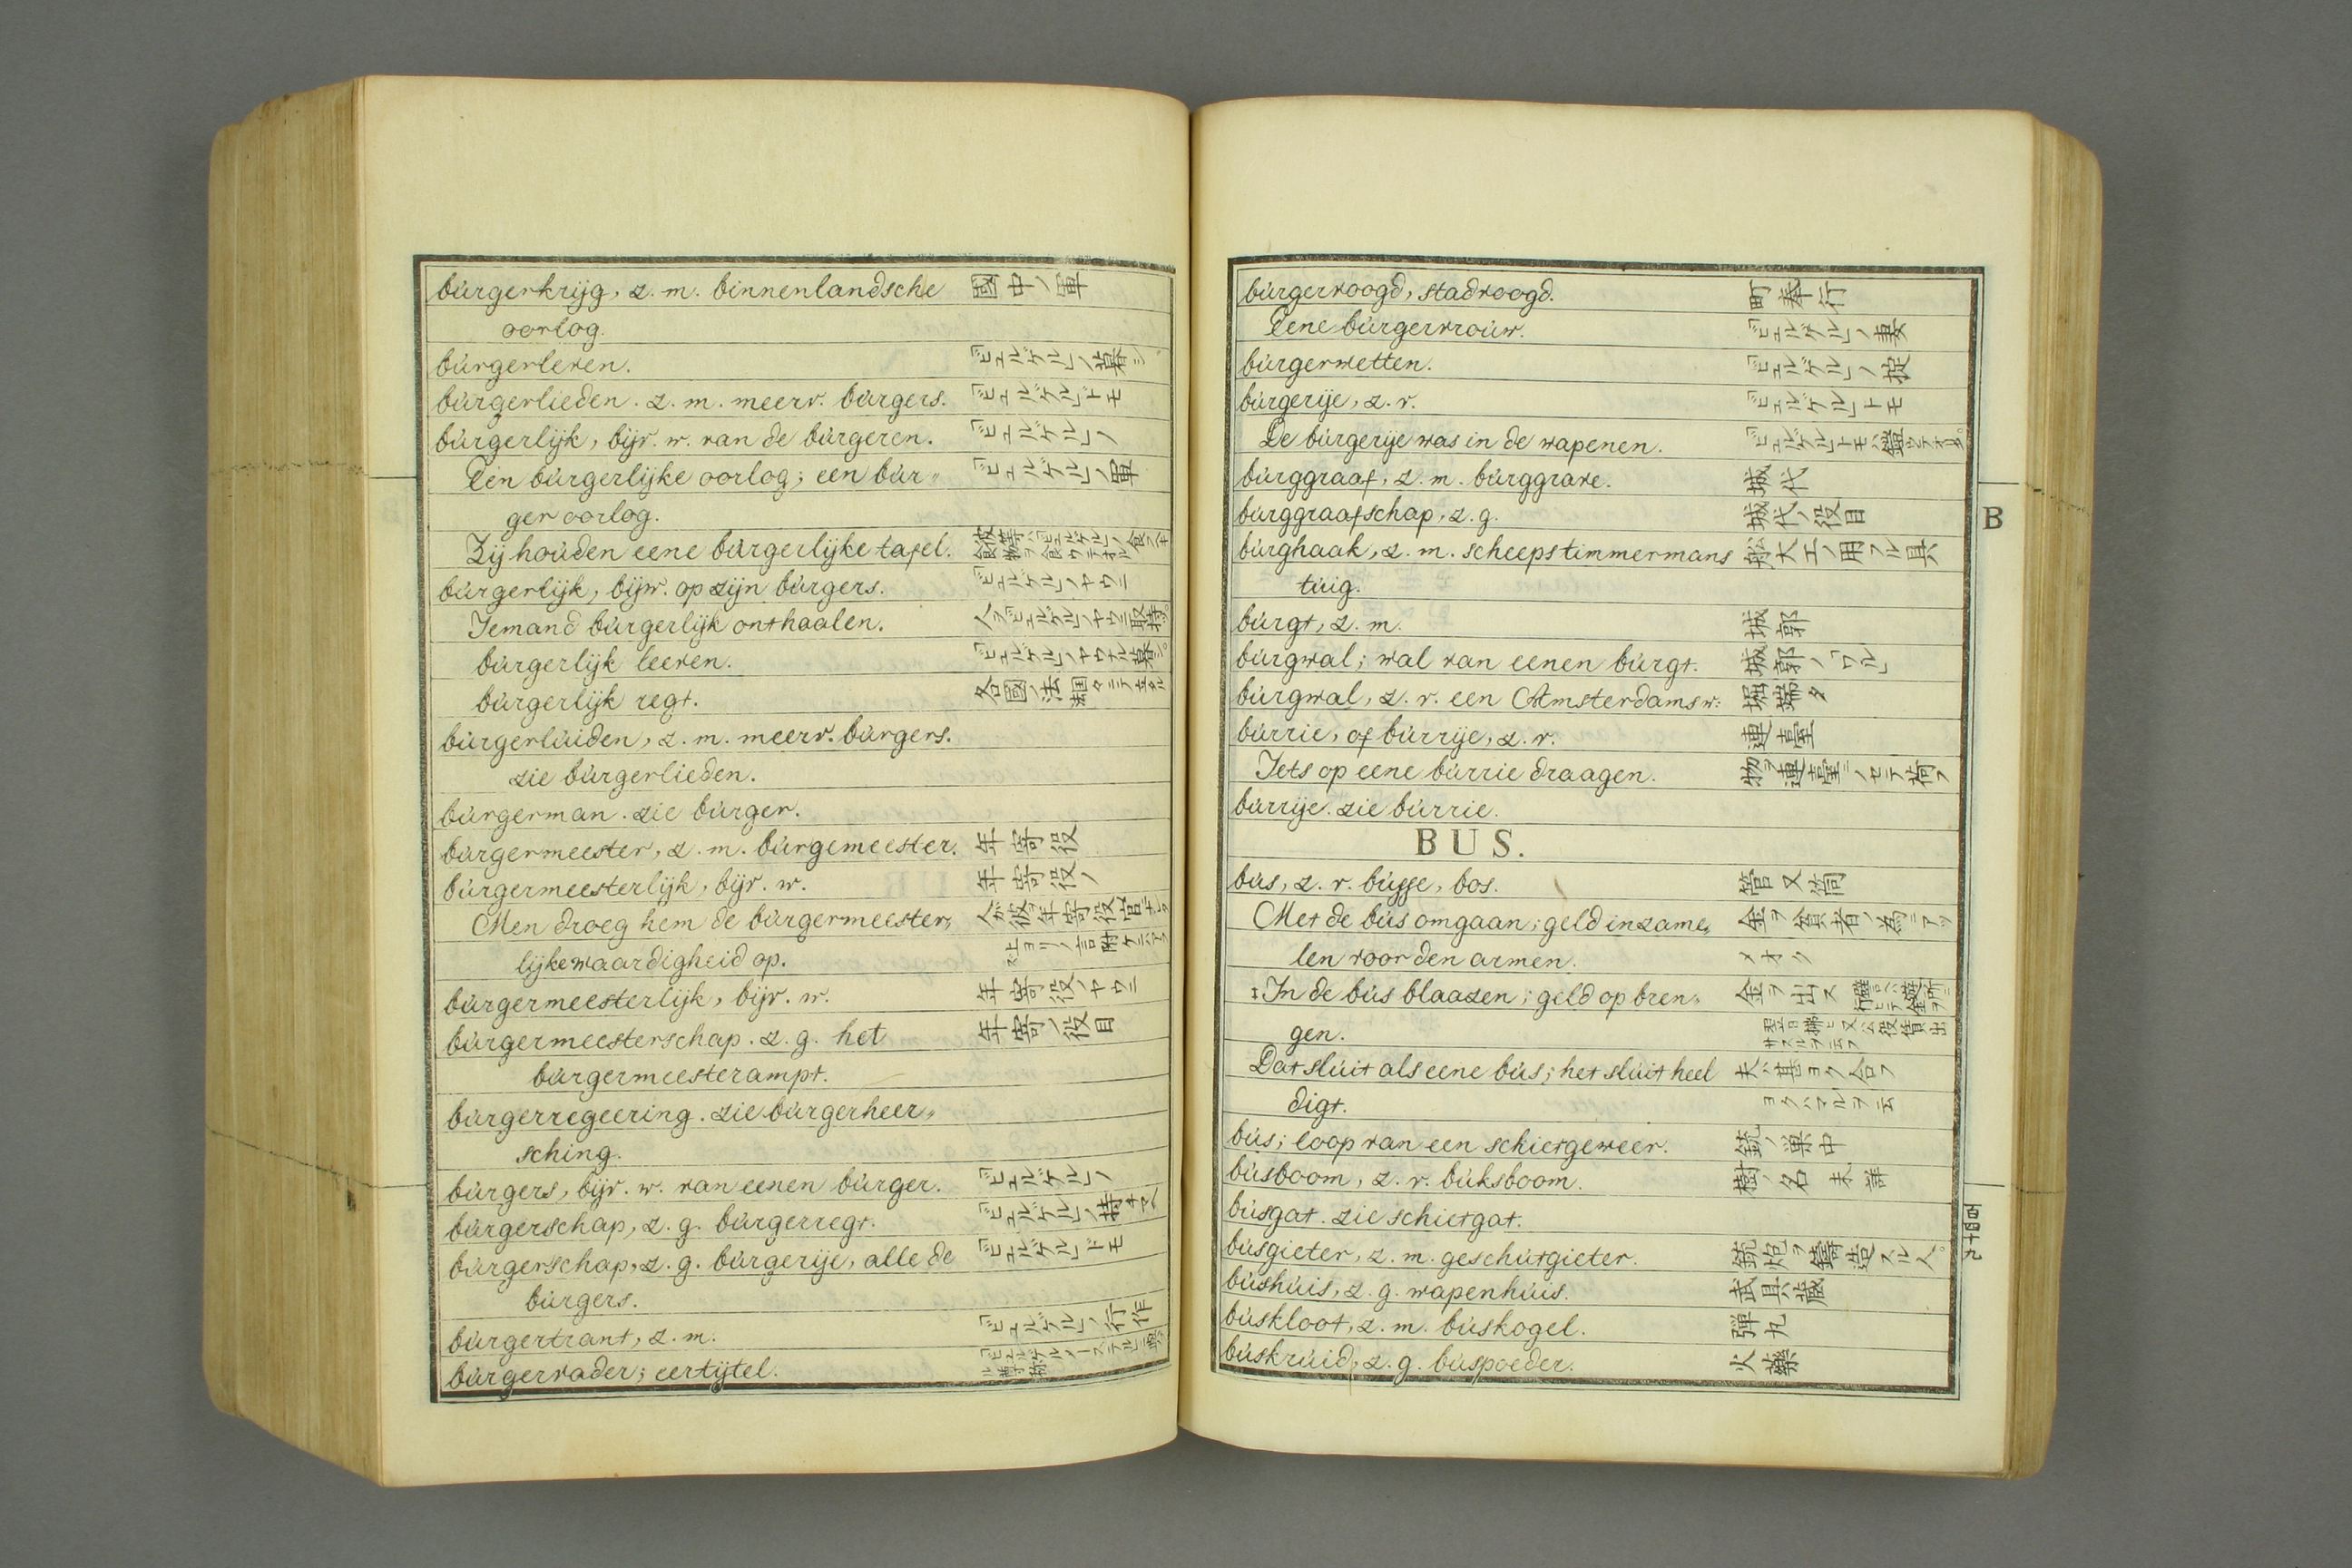 búrgerkrijg, z. m. binnenlandsche 國中ノ軍
oorlog.
búrgerleven. 「ビュルゲル」ノ暮シ
búrgerlieden. z. m. meerv. búrgers. 「ビュルゲル」ドモ
búrgerlijk, bijv. w. van de búrgeren. 「ビュルゲル」ノ
Één búrgerlijke oorlog; een búr„ 「ビュルゲル」ノ軍
ger oorlog.
Zij hoúden eene búrgerlijke tafel.
búrgerlijk, bijw. op zijn búrgers. 「ビュルゲル」ノヤウニ
Iemand búrgerlijk onthaalen. 人ヲ「ビュルゲル」ノヤウニ取持。
búrgerlijk leeven. 「ビュルゲル」ノヤウナル暮シ。
búrgerlijk regt. 各國ノ法
búrgerlúiden, z. m. meerv. búrgers.
zie búrgerlieden.
búrgerman. zie búrger.
búrgermeester, z. m. búrgemeester. 年寄役
búrgermeesterlijk, bijv. w. 年寄役ノ
Men droeg hem de búrgermeester„ 人ガ彼ヲ年寄役
lijke waardigheid op.
búrgermeesterlijk, bijv. w. 年寄役ノヤウニ
búrgermeesterschap. z. g. het 年寄ノ役目
búrgermeesterampt.
búrgerregeering. zie búrgerheer„
sching.
búrgers, bijv. w. van eenen búrger. 「ビュルゲル」ノ
búrgerschap, z. g. búrgerregt. 「ビュルゲル」ノ持キマヘ
búrgerschap, z. g. búrgerije, alle de 「ビュルゲル」ドモ
búrgers.
búrgertrant, z. m. 「ビュルゲル」ノ行作
búrgervader; eertijtel.
búrgervoogd, stadvoogd. 町奉行
Eene búrgervroúw. 「ビュルゲル」ノ妻
búrgerwetten. 「ビュルゲル」ノ掟
búrgerije, z. v. 「ビュルゲル」トモ
De búrgerije was in de wapenen. 「ビュルゲル」トモハ鎧ツテオル。
búrggraaf, z. m. búrggrave. 城代
búrggraafschap, z. g. 城代ノ役目
B
búrghaak, z. m. scheepstimmermans 舩大工ノ用フル具
túig.
búrgt, z. m. 城郭
búrgwal; wal van eenen búrgt. 城郭ノ「ワル」
búrgwal, z. v. een Amsterdams w: 堀端タ
búrrie, of búrrije, z. v. 連臺
Iets op eene búrrie draagen. 物ヲ連臺ニノセテ荷フ
búrrije. zie búrrie.
BUS.
bús, z. v. bússe, bos. 管又筒
Met de bús omgaan; geld inzame„ 金ヲ貧者ノ為ニアツ
len voor den armen. メオク
‡In de bús blaazen; geld op bren„ 金ヲ出ス
gen.
Dat slúit als eene bús; het slúit heel 夫ハ甚ヨク合フ
digt. ヨクハマルヲ云
bús; loop van een schietgeweer. 銃ノ巣中
búsboom, z. v. búksboom. 樹ノ名 未詳
búsgat. zie schietgat.
百四十九
búsgieter, z. m. geschútgieter. 銃炮ヲ鑄造スル人。
búshúis, z. g. wapenhúis. 武具藏
búskloot, z. m. búskogel. 彈丸
búskrúid, z. g. búspoeder. 火藥